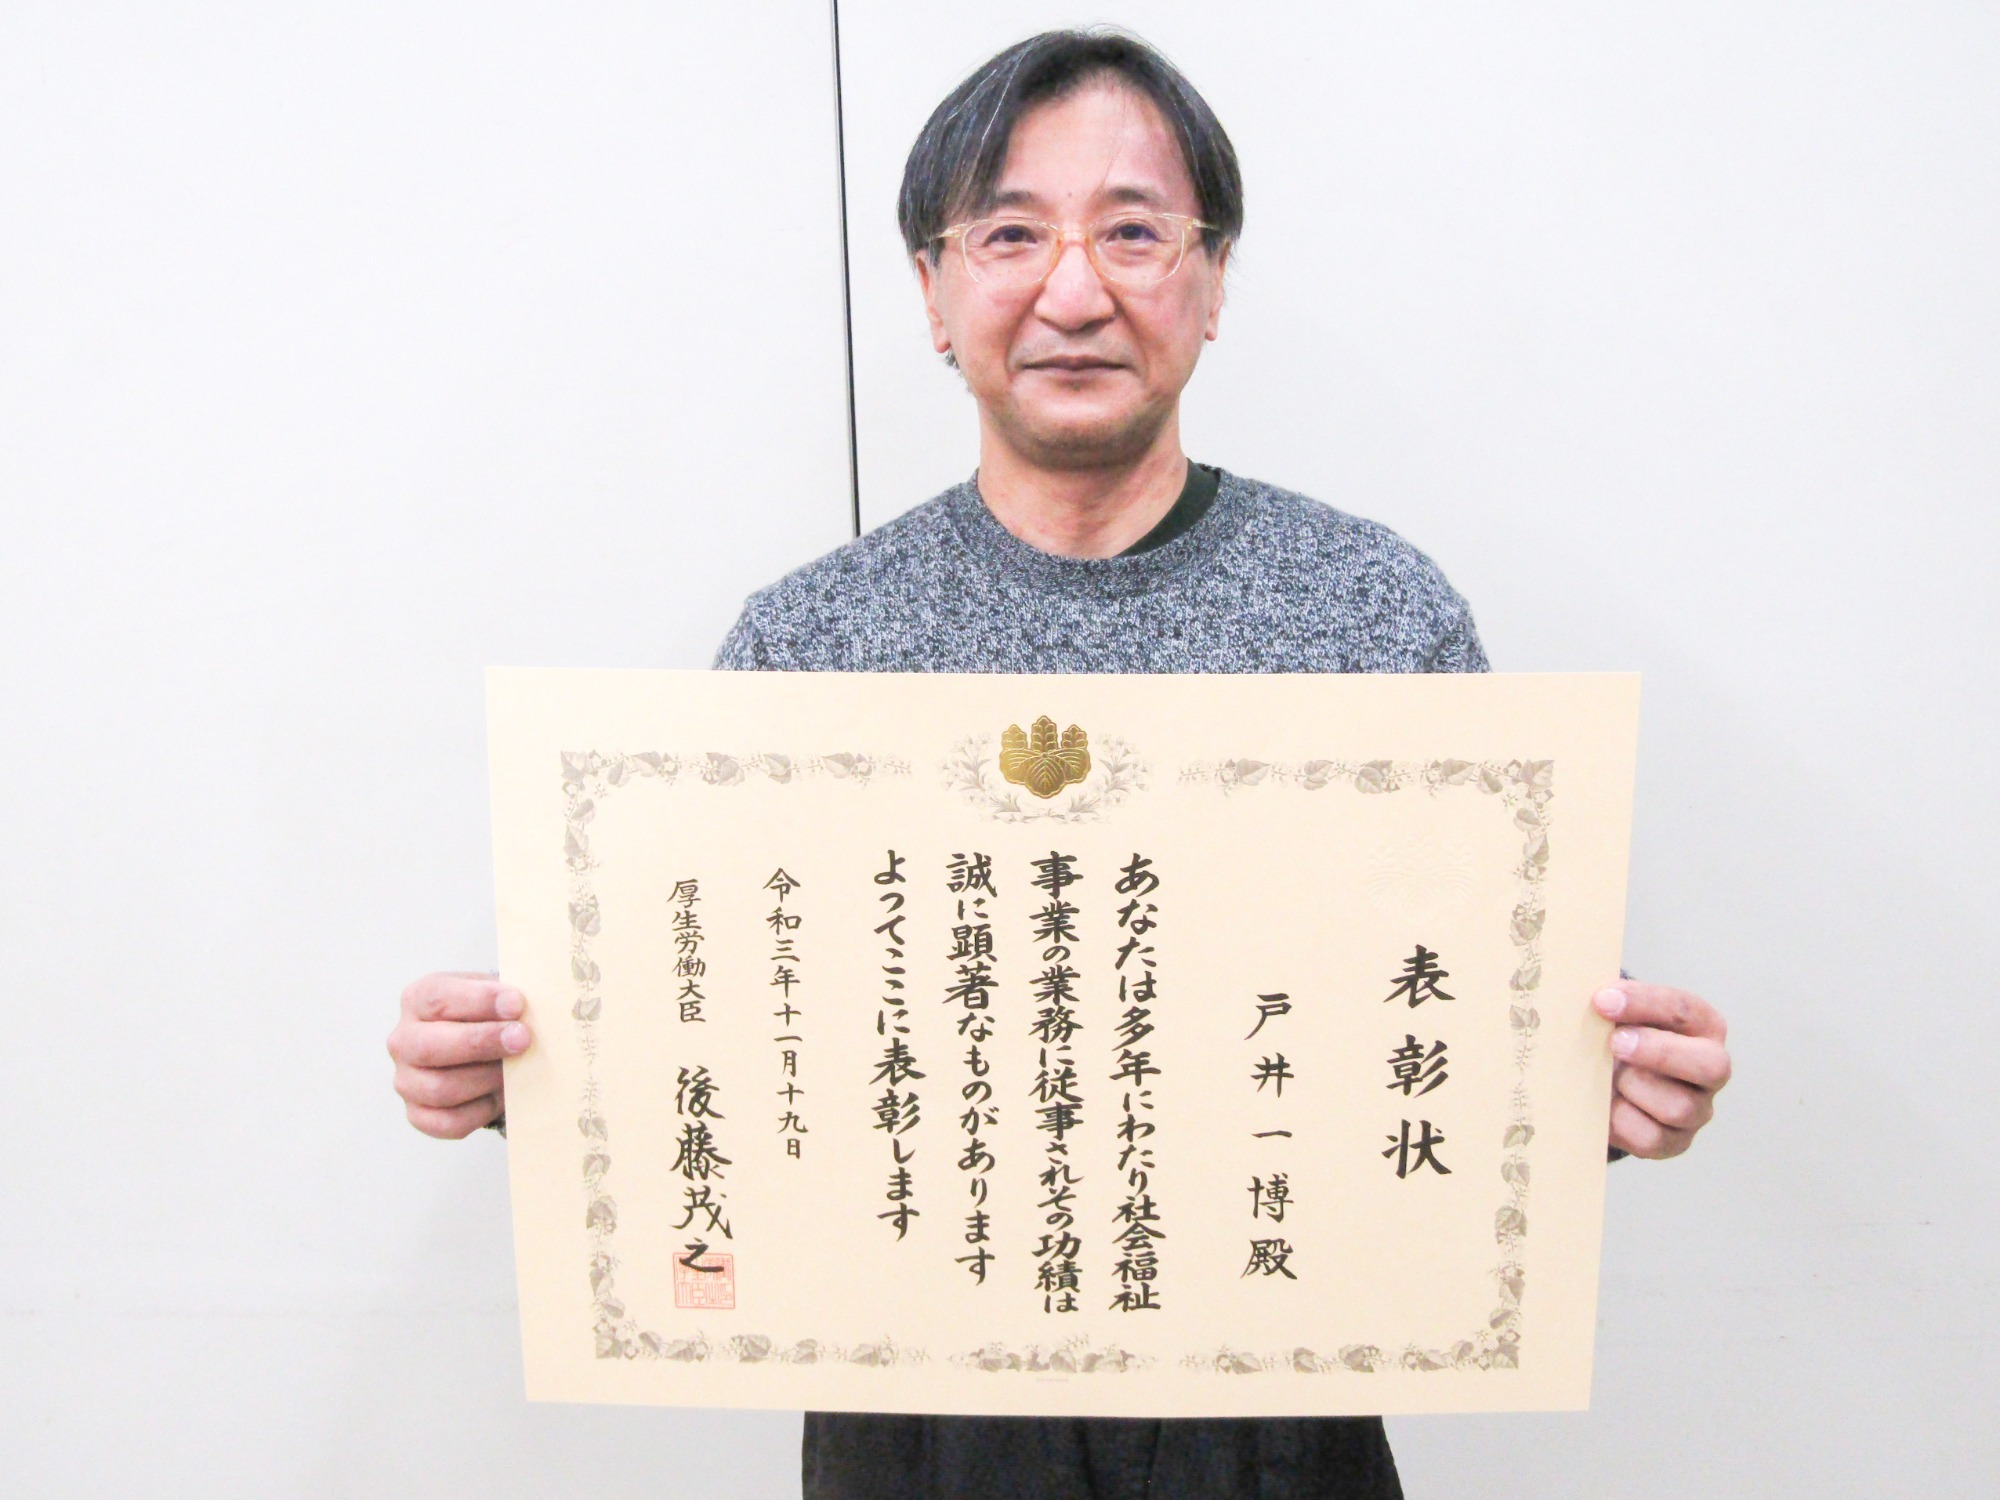 表彰状
戸井一博殿
あなたは多年にわたり社会福祉
事業の業務に従事されその功績は
誠に顕著なものがあります
よってここに表彰します
令和三年十一月十九日
厚生労働大臣 後藤茂之